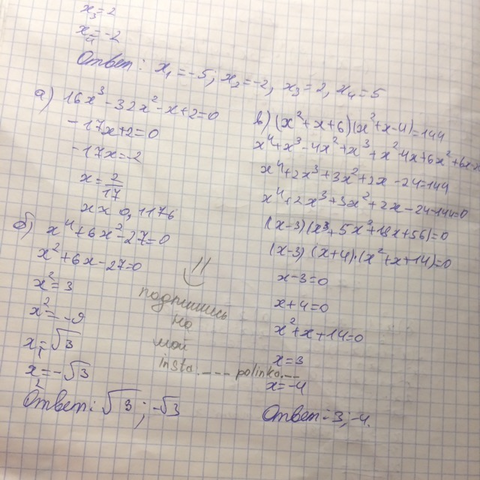 x₃=2
x₄=-2
Ответ: x₁=-5, x₂=-2, x₃=2, x₄=5
а) 16x³-32x²-x+2=0
-17x+2=0
-17x=-2
x=2/17
x≈0,1176
б) x⁴+6x²-27=0
x²+6x-27=0
x²=3
x²=-9
x₁=√3
x₂=-√3
Ответ: √3; -√3
в) (x²+x+6)(x²+x-4)=144
x⁴+x³-4x²+x³+x²-4x+6x²+6x-24
x⁴+2x³+3x²+2x-24=144
x⁴+2x³+3x²+2x-24-144=0
(x-3)(x³+5x²+18x+56)=0
(x-3)·(x+4)·(x²+x+14)=0
x-3=0
x+4=0
x²+x+14=0
x=3
x=-4
Ответ: 3; -4.
!!
подпишись
на
мой
insta.---- polinka.--